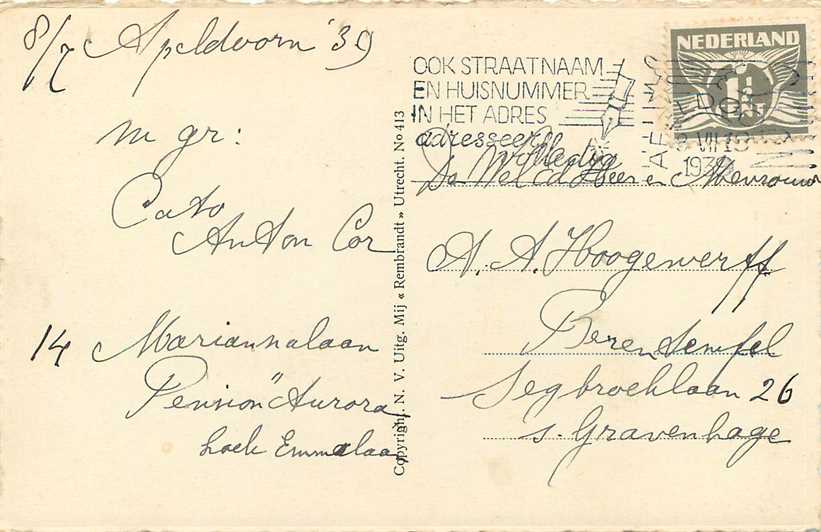 8/7 Apeldoorn '39
m gr:
Cato
Anton Cor
14 Mariannalaan
Pension "Aurora
hoek Emmalaan
Copyright. N. V. Uitg. Mij « Rembrandt » Utrecht. No 413
NEDERLAND
1½
OOK STRAATNAAM
EN HUISNUMMER
IN HET ADRES
adresseer
volledig
1939
De Wel Ed Heer en Mevrouw
A. A. Hoogewerff
Segbroeklaan 26
s. Gravenhage